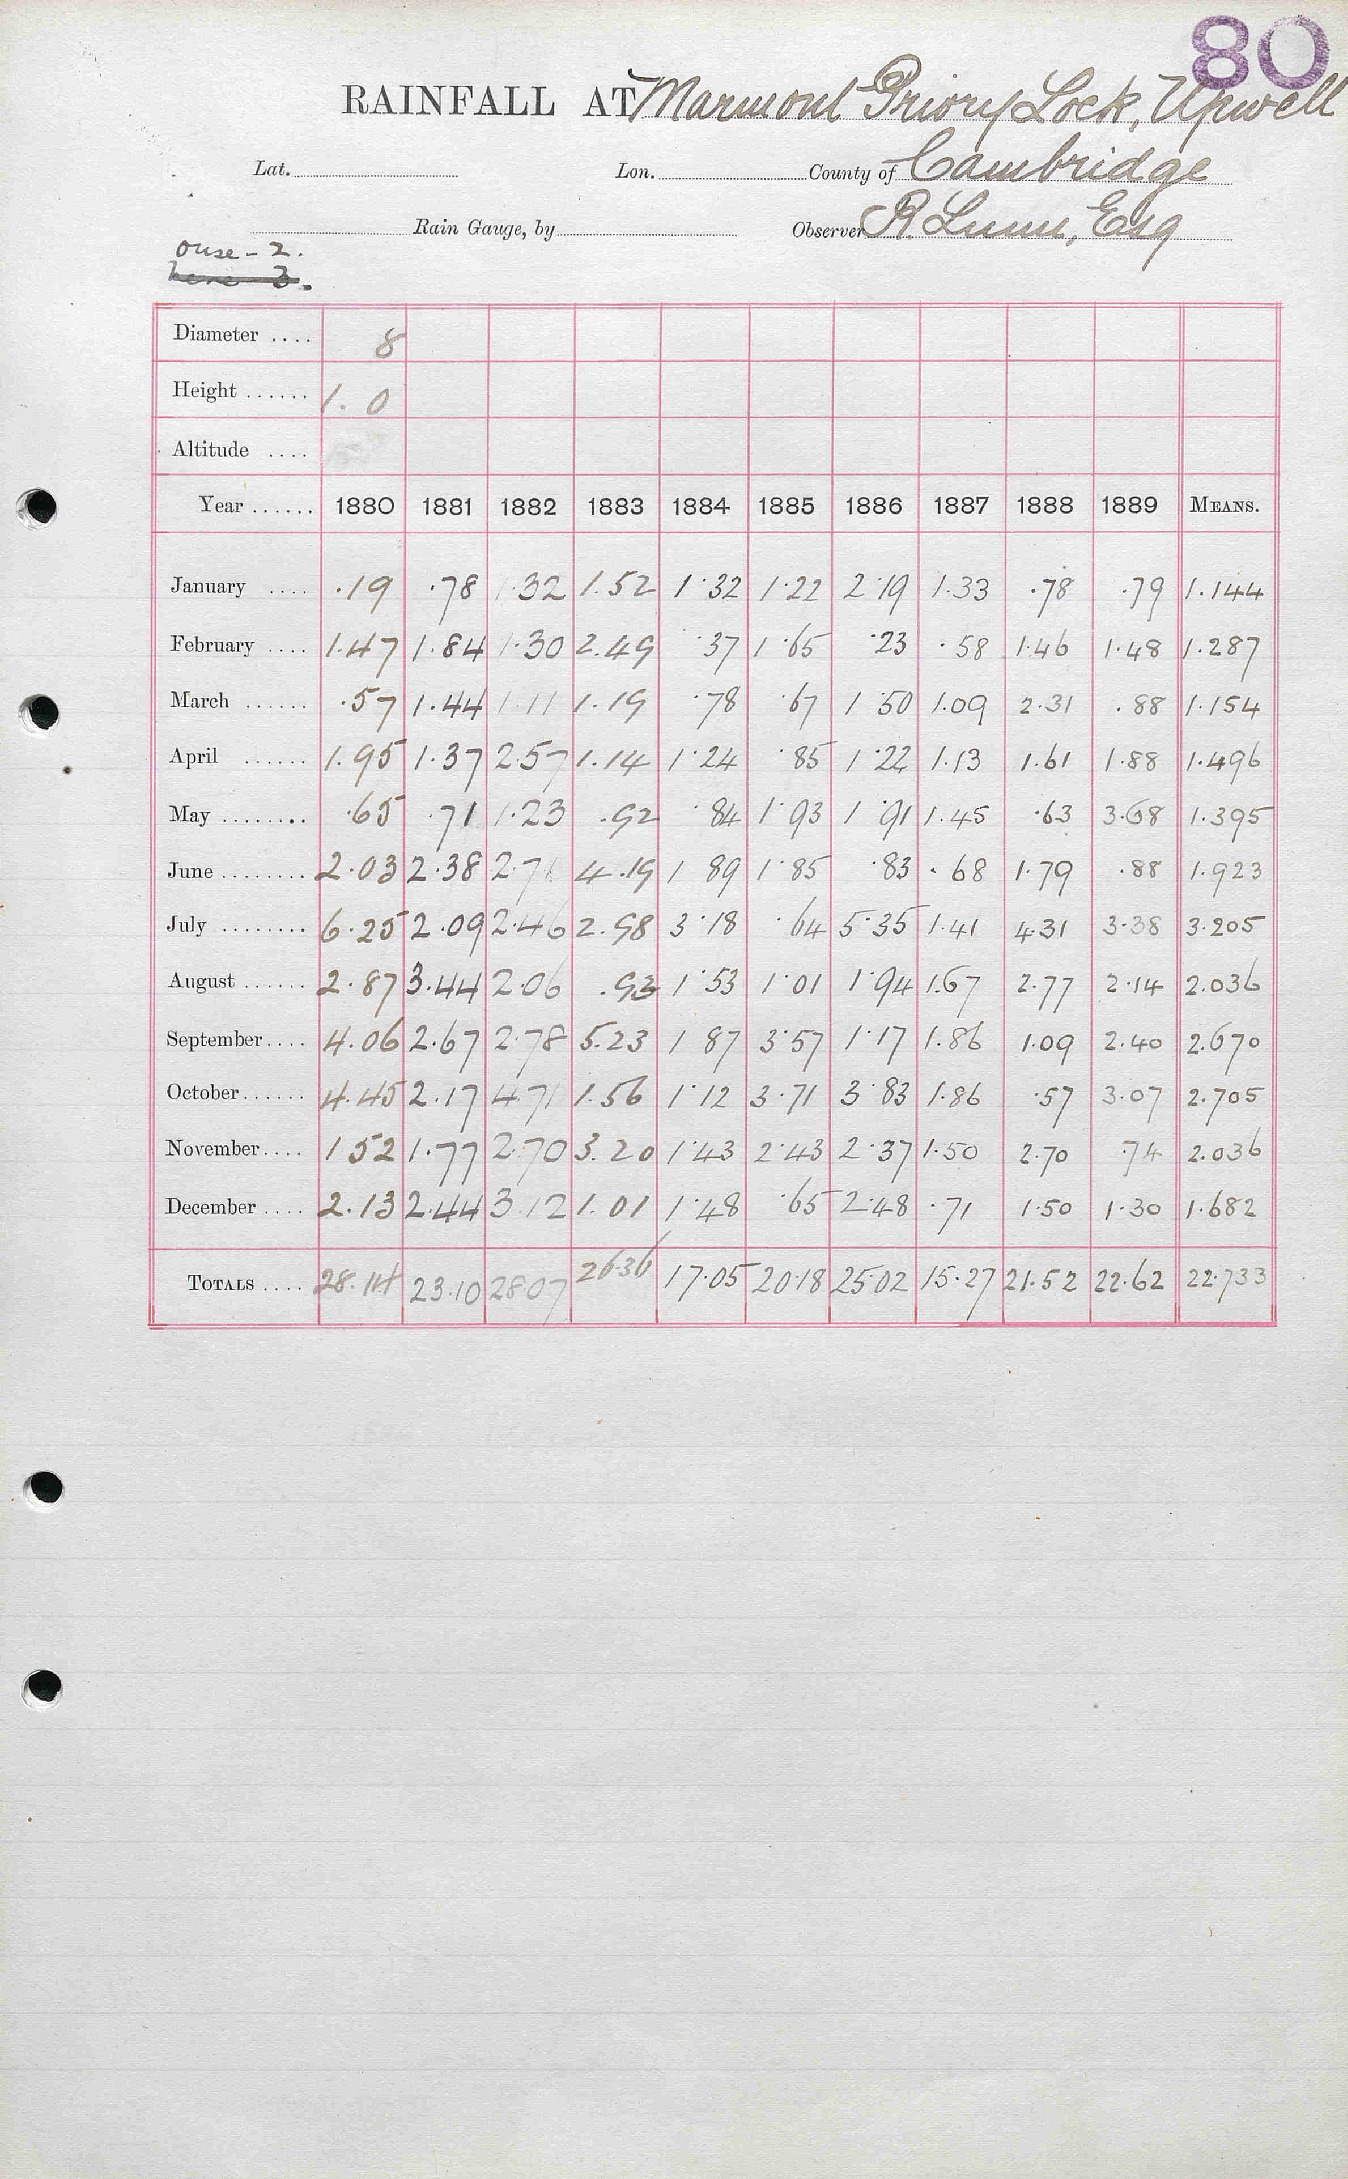 80
RAINFALL AT Marmont Priory Lock, Upwell
Lat. Lon. County of Cambridge
Rain Gauge, by Observer R. Lunn, Esq
ouse - 2.
Diameter .... 8
Height ...... 1. 0
Altitude ....
Year ...... 1880 1881 1882 1883 1884 1885 1886 1887 1888 1889 MEANS.
January .... .19 .78 1.32 1.52 1.32 1.22 2.19 1.33 .78 .79 1.144
February .... 1.47 1.84 1.30 2.49 .37 1.65 .23 .58 1.46 1.48 1.287
March ...... .57 1.44 1.11 1.19 .78 .67 1.50 1.09 2.31 .88 1.154
April ...... 1.95 1.37 2.57 1.14 1.24 .85 1.22 1.13 1.61 1.88 1.496
May ........ .65 .71 1.23 .92 .84 1.93 1.91 1.45 .63 3.68 1.395
June ........ 2.03 2.38 2.71 4.19 1 89 1.85 .83 .68 1.79 .88 1.923
July ........ 6.25 2.09 2.46 2.98 3.18 .64 5.35 1.41 4.31 3.38 3.205
August ...... 2.87 3.44 2.06 .93 1.53 1.01 1.94 1.67 2.77 2.14 2.036
September .... 4.06 2.67 2.78 5.23 1 87 3.57 1.17 1.86 1.09 2.40 2.670
October ...... 4.45 2.17 4.71 1.56 1.12 3.71 3.83 1.86 .57 3.07 2.705
November .... 1 52 1.77 2.70 3.20 1.43 2.43 2.37 1.50 2.70 .74 2.036
December .... 2.13 2.44 3.12 1.01 1.48 .65 2.48 .71 1.50 1.30 1.682
TOTALS .... 28.14 23.10 28.07 26.36 17.05 20.18 25.02 15.27 21.52 22.62 22.733